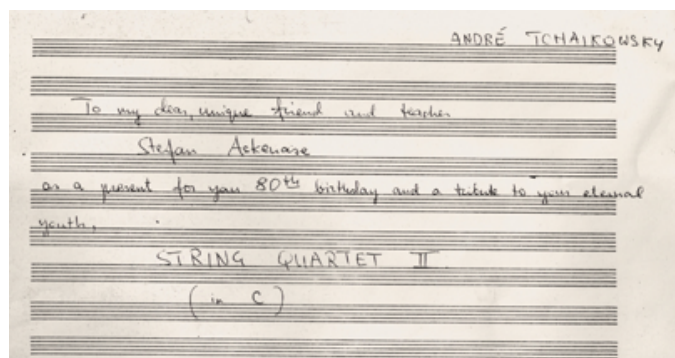 ANDRÉ TCHAIKOWSKY
To my dear, unique friend and teacher
Stefan Askenase
as a present for your 80th birthday and a tribute to your eternal
youth,
STRING QUARTET II
(in C)